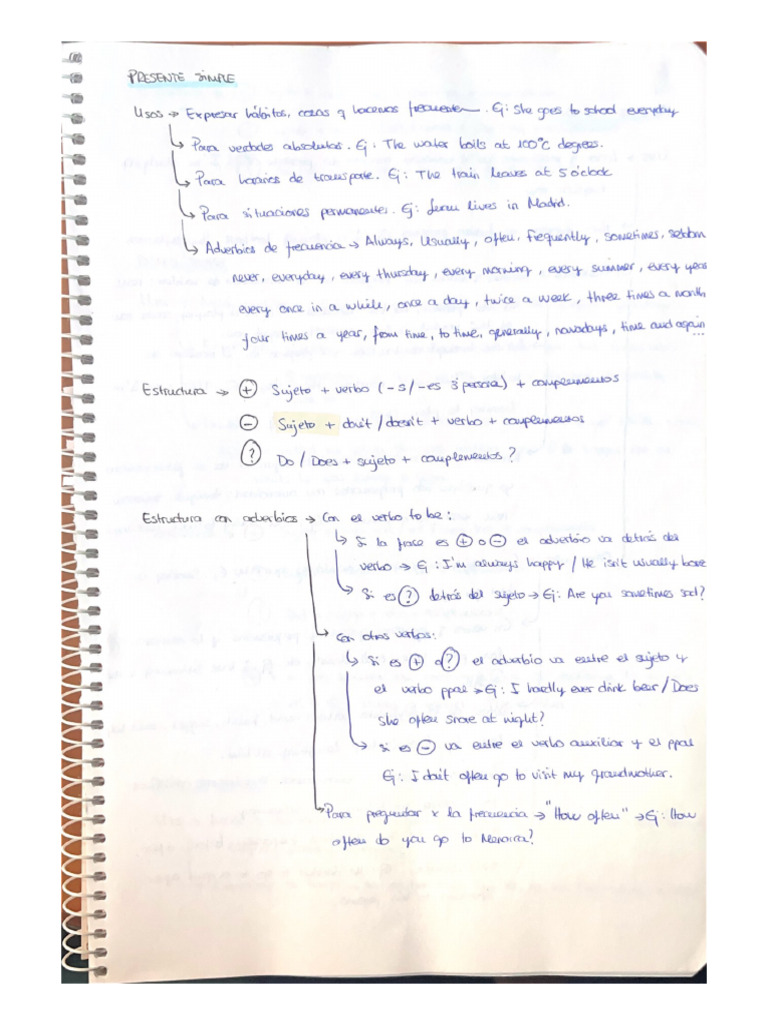 PRESENTE SIMPLE
Usos → Expresar hábitos, cosas q hacemos frecuentem. Ej: She goes to school everyday
Para verdades absolutas. Ej: The water boils at 100°C degrees.
Para horarios de transporte. Ej: The train leaves at 5 o'clock
Para situaciones permanentes. Ej: lives in Madrid.
Adverbios de frecuencia → Always, Usually, often, frequently, sometimes, seldom
never, everyday, every thursday, every morning, every summer, every year
every once in a while, once a day, twice a week, three times a month
four times a year, from time, to time, generally, nowadays, time and again...
Estructura → (+) Sujeto + verbo (-s/-es 3ª persona) + complementos
(-) Sujeto + don't / doesn't + verbo + complementos
(?) Do / Does + sujeto + complementos?
Estructura con adverbios → Con el verbo to be:
Si la frase es (+) o (-) el adverbio va detrás del
verbo → Ej: I'm always happy / He isn't usually
Si es (?) detrás del sujeto → Ej: Are you sometimes sad?
Con otros verbos:
Si es (+) o (?) el adverbio va entre el sujeto y
el verbo ppal → Ej: I hardly ever drink beer / Does
she often snore at night?
Si es (-) va entre el verbo auxiliar y el ppal
Ej: I don't often go to visit my grandmother.
Para preguntar x la frecuencia → "How often" → Ej: How
often do you go to?